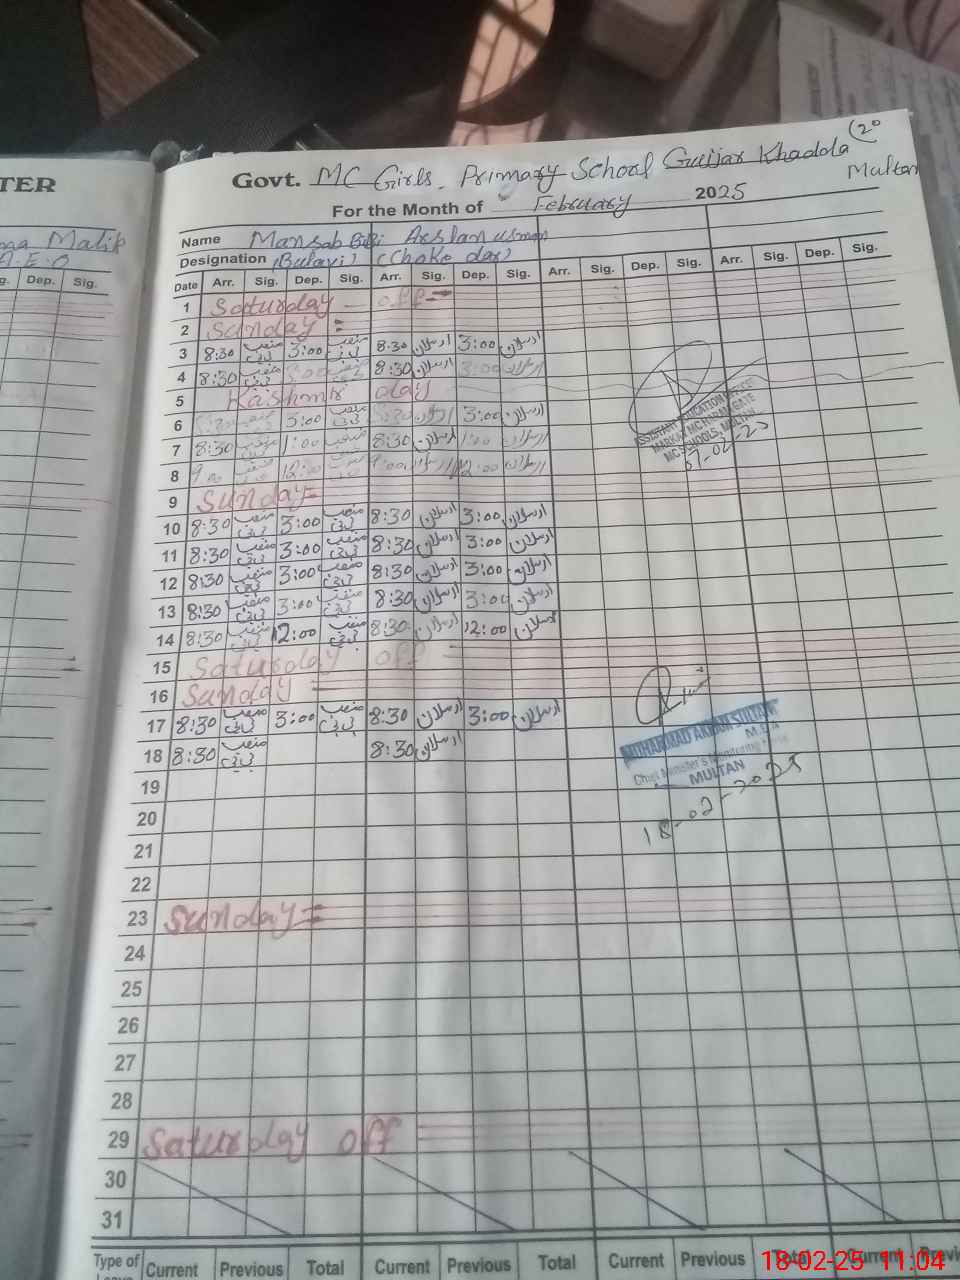 TER
Malik
A.E.O
g. Dep. Sig.
(20
Govt. MC Girls. Primary School Gujjar Khadda
Multan
For the Month of February 2025
Name Mansab Bibi Arslan usman
Designation (Bulavi) (Choke dar)
Date Arr. Sig. Dep. Sig. Arr. Sig. Dep. Sig. Arr. Sig. Dep. Sig. Arr. Sig. Dep. Sig.
1 Saturday off
2 Sunday
3 8:30 منصب بی بی 3:00 منصب بی بی 8:30 ارسلان 3:00 ارسلان
4 8:30 منصب بی بی 3:00 منصب بی بی 8:30 ارسلان 3:00 ارسلان
5 Kashmir day
6 8:30 منصب بی بی 3:00 منصب بی بی 8:30 ارسلان 3:00 ارسلان
7 8:30 منصب بی بی 1:00 منصب بی بی 8:30 ارسلان 1:00 ارسلان
8 9:00 منصب بی بی 12:00 منصب بی بی 9:00 ارسلان 12:00 ارسلان
ASSISTANT EDUCATION OFFICER
MARKAZ MC HARAM GATE
MC SCHOOLS, MULTAN
9 Sunday
10 8:30 منصب بی بی 3:00 منصب بی بی 8:30 ارسلان 3:00 ارسلان
11 8:30 منصب بی بی 3:00 منصب بی بی 8:30 ارسلان 3:00 ارسلان
12 8:30 منصب بی بی 3:00 منصب بی بی 8:30 ارسلان 3:00 ارسلان
13 8:30 منصب بی بی 3:00 منصب بی بی 8:30 ارسلان 3:00 ارسلان
14 8:30 منصب بی بی 12:00 منصب بی بی 8:30 ارسلان 12:00 ارسلان
15 Saturday off
16 Sunday
17 8:30 منصب بی بی 3:00 منصب بی بی 8:30 ارسلان 3:00 ارسلان
18 8:30 منصب بی بی 8:30 ارسلان
MUHAMMAD AKRAM SULTANI
M.E.A
Chief Minister's Monitoring Force
MULTAN
18-02-2025
19
20
21
22
23 Sunday
24
25
26
27
28
29 Saturday off
30
31
Type of Current Previous Total Current Previous Total Current Previous Total Current Previ
18-02-25 11:04